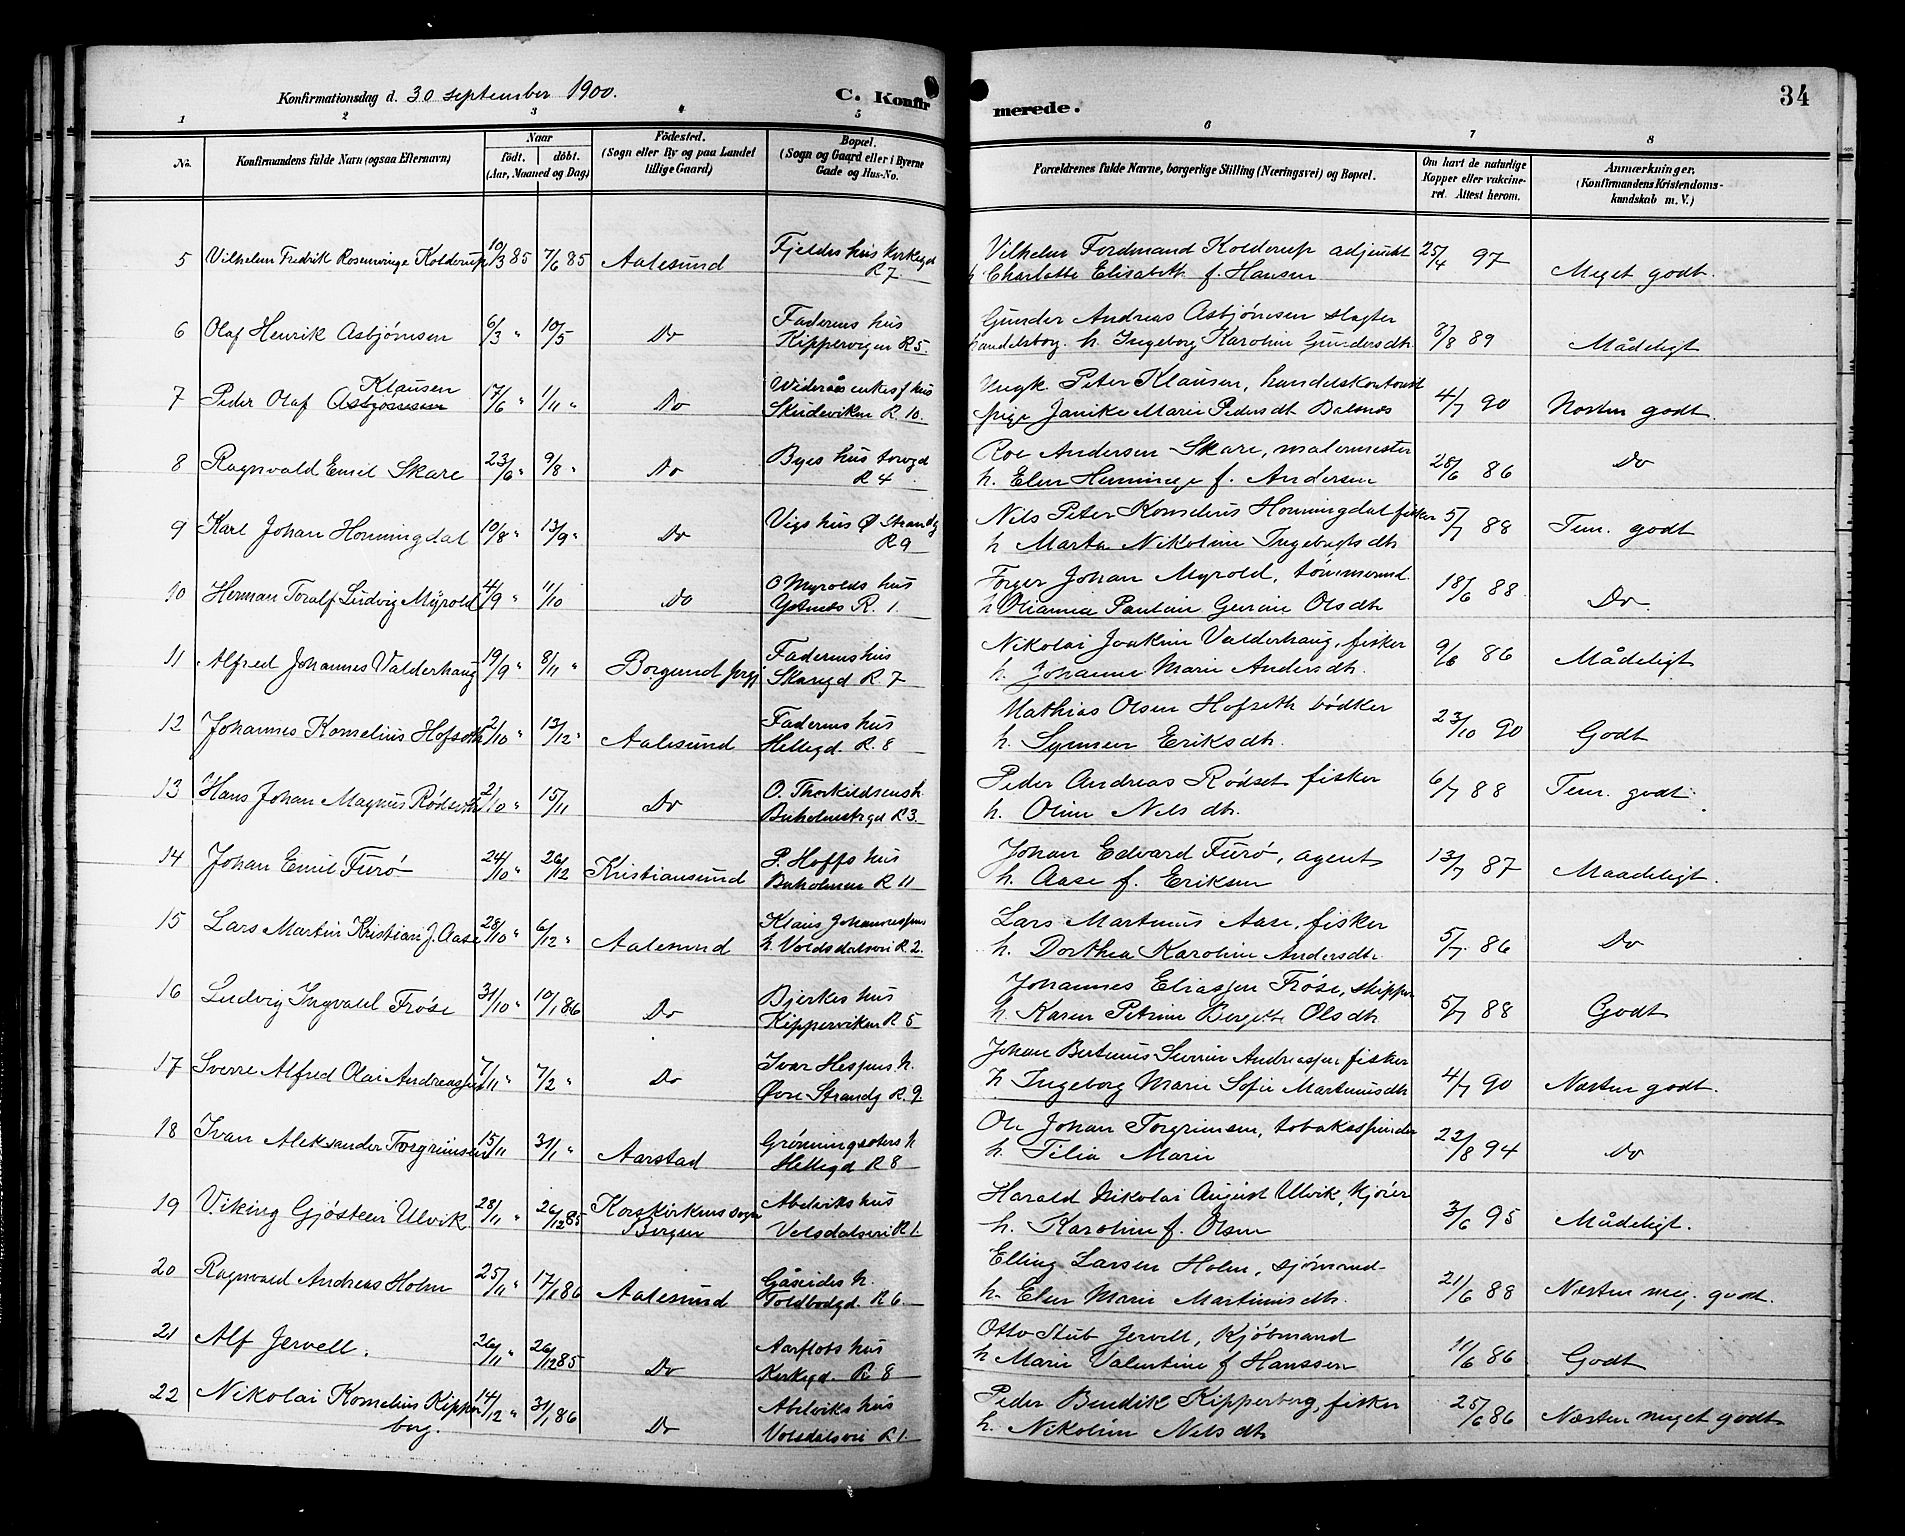 34
Konfirmationsdag d. 30 september 1900.
C. Konfir
merede.
1 2 3 4 5 6 7 8
No.
Konfirmandens fulde Navn (ogsaa Efternavn)
Naar
født. døbt.
(Aar, Maaned og Dag)
Fødested.
(Sogn eller By og paa Landet
tillige Gaard)
Bopæl.
(Sogn og Gaard eller i Byerne
Gade og Hus-No.
Forældrenes fulde Navne, borgerlige Stilling (Næringsvei) og Bopæl.
Om havt de naturlige
Kopper eller vakcine-
ret. Attest herom.
Anmærkninger.
(Konfirmandens Kristendoms-
kundskab m. V.)
5 Vilhelm Fredrik Rosenvinge Kolderup 10/3 85 7/6 85 Aalesund Fjeldes hus Kirkegd R 7 Vilhelm Ferdinand Kolderup adjunkt
h Charlotte Elisabeth f. Hansen 25/4 97 Meget godt.
6 Olaf Henrik Asbjørnsen 6/3 " 10/5 Do Faderens hus
Kippervigen R 5. Gunder Andreas Asbjørnsen slagter
handelsborg. h. Ingeborg Karoline Gundersdt. 8/8 89 Mådeligt
7 Peder Olaf Asbjørnsen Klausen 17/6 " 1/11 " Do enkes hus
Skudeviken R. 10. Ungk. Peter Klausen, handelskontorist
pige Janike Marie Pedersdt Balsnes 4/7 90 Næsten godt
8 Ragnvald Emil Skare 23/6 " 9/8 " Do Byes hus torvgd
R 4 Roe Andersen Skare, malermester
h. Elen Henninge f. Andersen 28/6 86 Do
9 Karl Johan Honningdal 10/8 " 13/9 " Do Vigs hus Ø Strandg
R 9 Nils Peter Kornelius Honningdal fisker
h Marta Nikoline Ingebrigtsdt. 5/7 88 Tem. godt
10 Herman Toralf Ludvig Myrold 4/9 " 11/10 Do O Myrolds hus
R. 1. Johan Myrold, tømmermd.
h Olianna Pauline Gurine Olsdt 18/6 88 Do.
11 Alfred Johannes Valderhaug 19/9 " 8/11 " Borgund prgj Faderens hus
Skaregd R. 7 Nikolai Joakim Valderhaug, fisker
h. Johanne Marie Andersdt. 9/6 86 Mådeligt
12 Johannes Kornelius Hofseth 2/10 " 13/12 " Aalesund Faderens hus
Hellegd. R. 8 Mathias Olsen Hofseth bødker
h. Synneve Eriksdt. 23/10 90 Godt
13 Hans Johan Magnus Rødseth 2/10 " 15/11 Do O. Thorkildsens h.
Buholmstrgd R 3. Peder Andreas Rødset fisker
h. Oline Nilsdt. 6/7 88 Tem. godt
14 Johan Emil Furø 24/10 " 26/12 Kristiansund P. Hoffs hus
Buholmen R 11 Johan Edvard Furø, agent
h. Aase f. Eriksen 13/7 87 Maadeligt.
15 Lars Martin Kristian J. Aase 28/10 " 6/12 " Aalesund Klaus Johannessens
h. Voldsdalsvei R 2. Lars Martinus Aase, fisker
h. Dorthea Karoline Andersdt. 5/7. 86 Do
16 Ludvig Ingvald Frøse 31/10 " 10/1 86 Do Bjerkes hus
Kipperviken R 5 Johannes Eliassen Frøse, skipper
h. Karen Petrine Bergette Olsdt 5/7 88 Godt
17 Sverre Alfred Olai Andreassen 7/11 " 7/2 " Do Ivar Hessens h.
Øvre Strandg R. 9 Johan Bertinus Severin Andreassen fisker
h. Ingeborg Marie Sofie Martinusdt 4/7 90 Næsten godt.
18 Ivan Aleksander Torgrimsen 15/11 31/1 " Aarstad Grønningsæters h
Hellegd R 8 Ole Johan Torgrimsen, tobaksspinder
h. Tilia Marie 22/8 94 Do
19 Viking Gjøsteen Ulvik 28/11 " 26/12 85 Korskirkens sogn
Bergen Abelviks hus
Volsdalsvei R 1. Harald Nikolai August Ulvik, kjører
h. Karoline f. Olsen 3/6 95 Mådeligt.
20 Ragnvald Andreas Holm 25/11 " 17/1 86 Aalesund Gåseides h.
Toldbodgd. R 6. Elling Larsen Holm, sjømand
h. Elen Marie Martinusdt. 21/6 88 Næsten meg. godt.
21 Alf Jervell. 26/11 " 26/12 85 Do Aarflots hus
Kirkegd. R 8 Otto Stub Jervell, Kjøbmand
h Marie Valentine f Hanssen 11/6 86 Godt
22 Nikolai Kornelius Kipper
berg. 14/12 " 31/1 86 Do Abelviks hus
Volsdalsvei R 1. Peder Bendik Kipperberg, fisker
h. Nikoline Nilsdt 25/6 86 Næsten meget godt